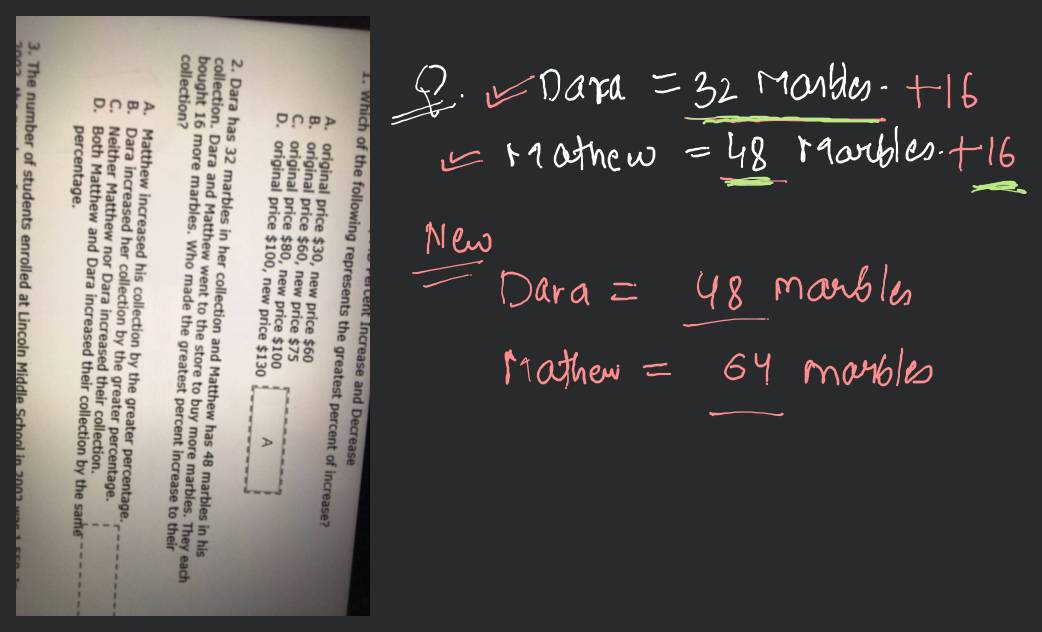 1. Which of the following represents the greatest percent of increase?
A. original price $30, new price $60
B. original price $60, new price $75
C. original price $80, new price $100
D. original price $100, new price $130
A
2. Dara has 32 marbles in her collection and Matthew has 48 marbles in his
collection. Dara and Matthew went to the store to buy more marbles. They each
bought 16 more marbles. Who made the greatest percent increase to their
collection?
A. Matthew increased his collection by the greater percentage.
B. Dara increased her collection by the greater percentage.
C. Neither Matthew nor Dara increased their collection.
D. Both Matthew and Dara increased their collection by the same
percentage.
3. The number of students enrolled at Lincoln Middle School in 2002 was
Q. Dara = 32 Marbles. +16
Mathew = 48 Marbles. +16
New
Dara = 48 marbles
Mathew = 64 marbles